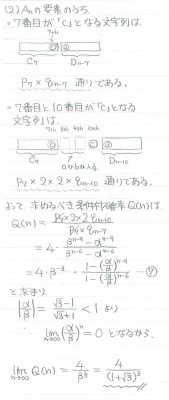 (2) Anの要素のうち
・7番目が「C」となる文字列は、
7th
C D
C₇ Dn-7
P₇ × qn-7 通りである。
・7番目と10番目が「C」となる
文字列は、
7th 8th 9th 10th
C C D
C₇ Dn-10
P₇ × 2 × 2 × qn-10 通りである。
よって、求めるべき条件付確率Q(n)は、
Q(n) = P₇ × 2 × 2 × qn-10 / P₇ × qn-7
= 4 · βⁿ⁻⁹ − αⁿ⁻⁹ / βⁿ⁻⁶ − αⁿ⁻⁶
= 4 · β⁻³ · 1 − (α/β)ⁿ⁻⁹ / 1 − (α/β)ⁿ⁻⁶
と求まり
|α/β| = √3−1 / √3+1 < 1 より
lim n→∞ (α/β)ⁿ = 0 となるから、
lim n→∞ Q(n) = 4/β³ = 4/(1+√3)³